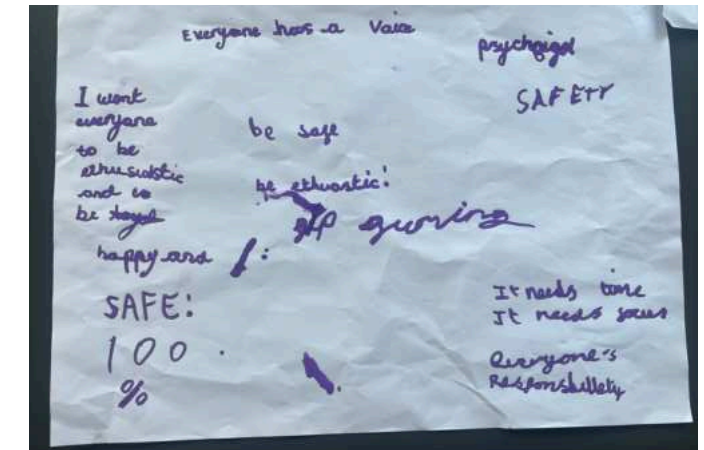 Everyone has a Voice
psychoigol
SAFETY
I wont
everyone
to be
ethusiastic
and to
be
happy and
SAFE:
100.
%
be safe
be ethuastic!
It needs time
It needs focus
Everyone's
Responsibillety